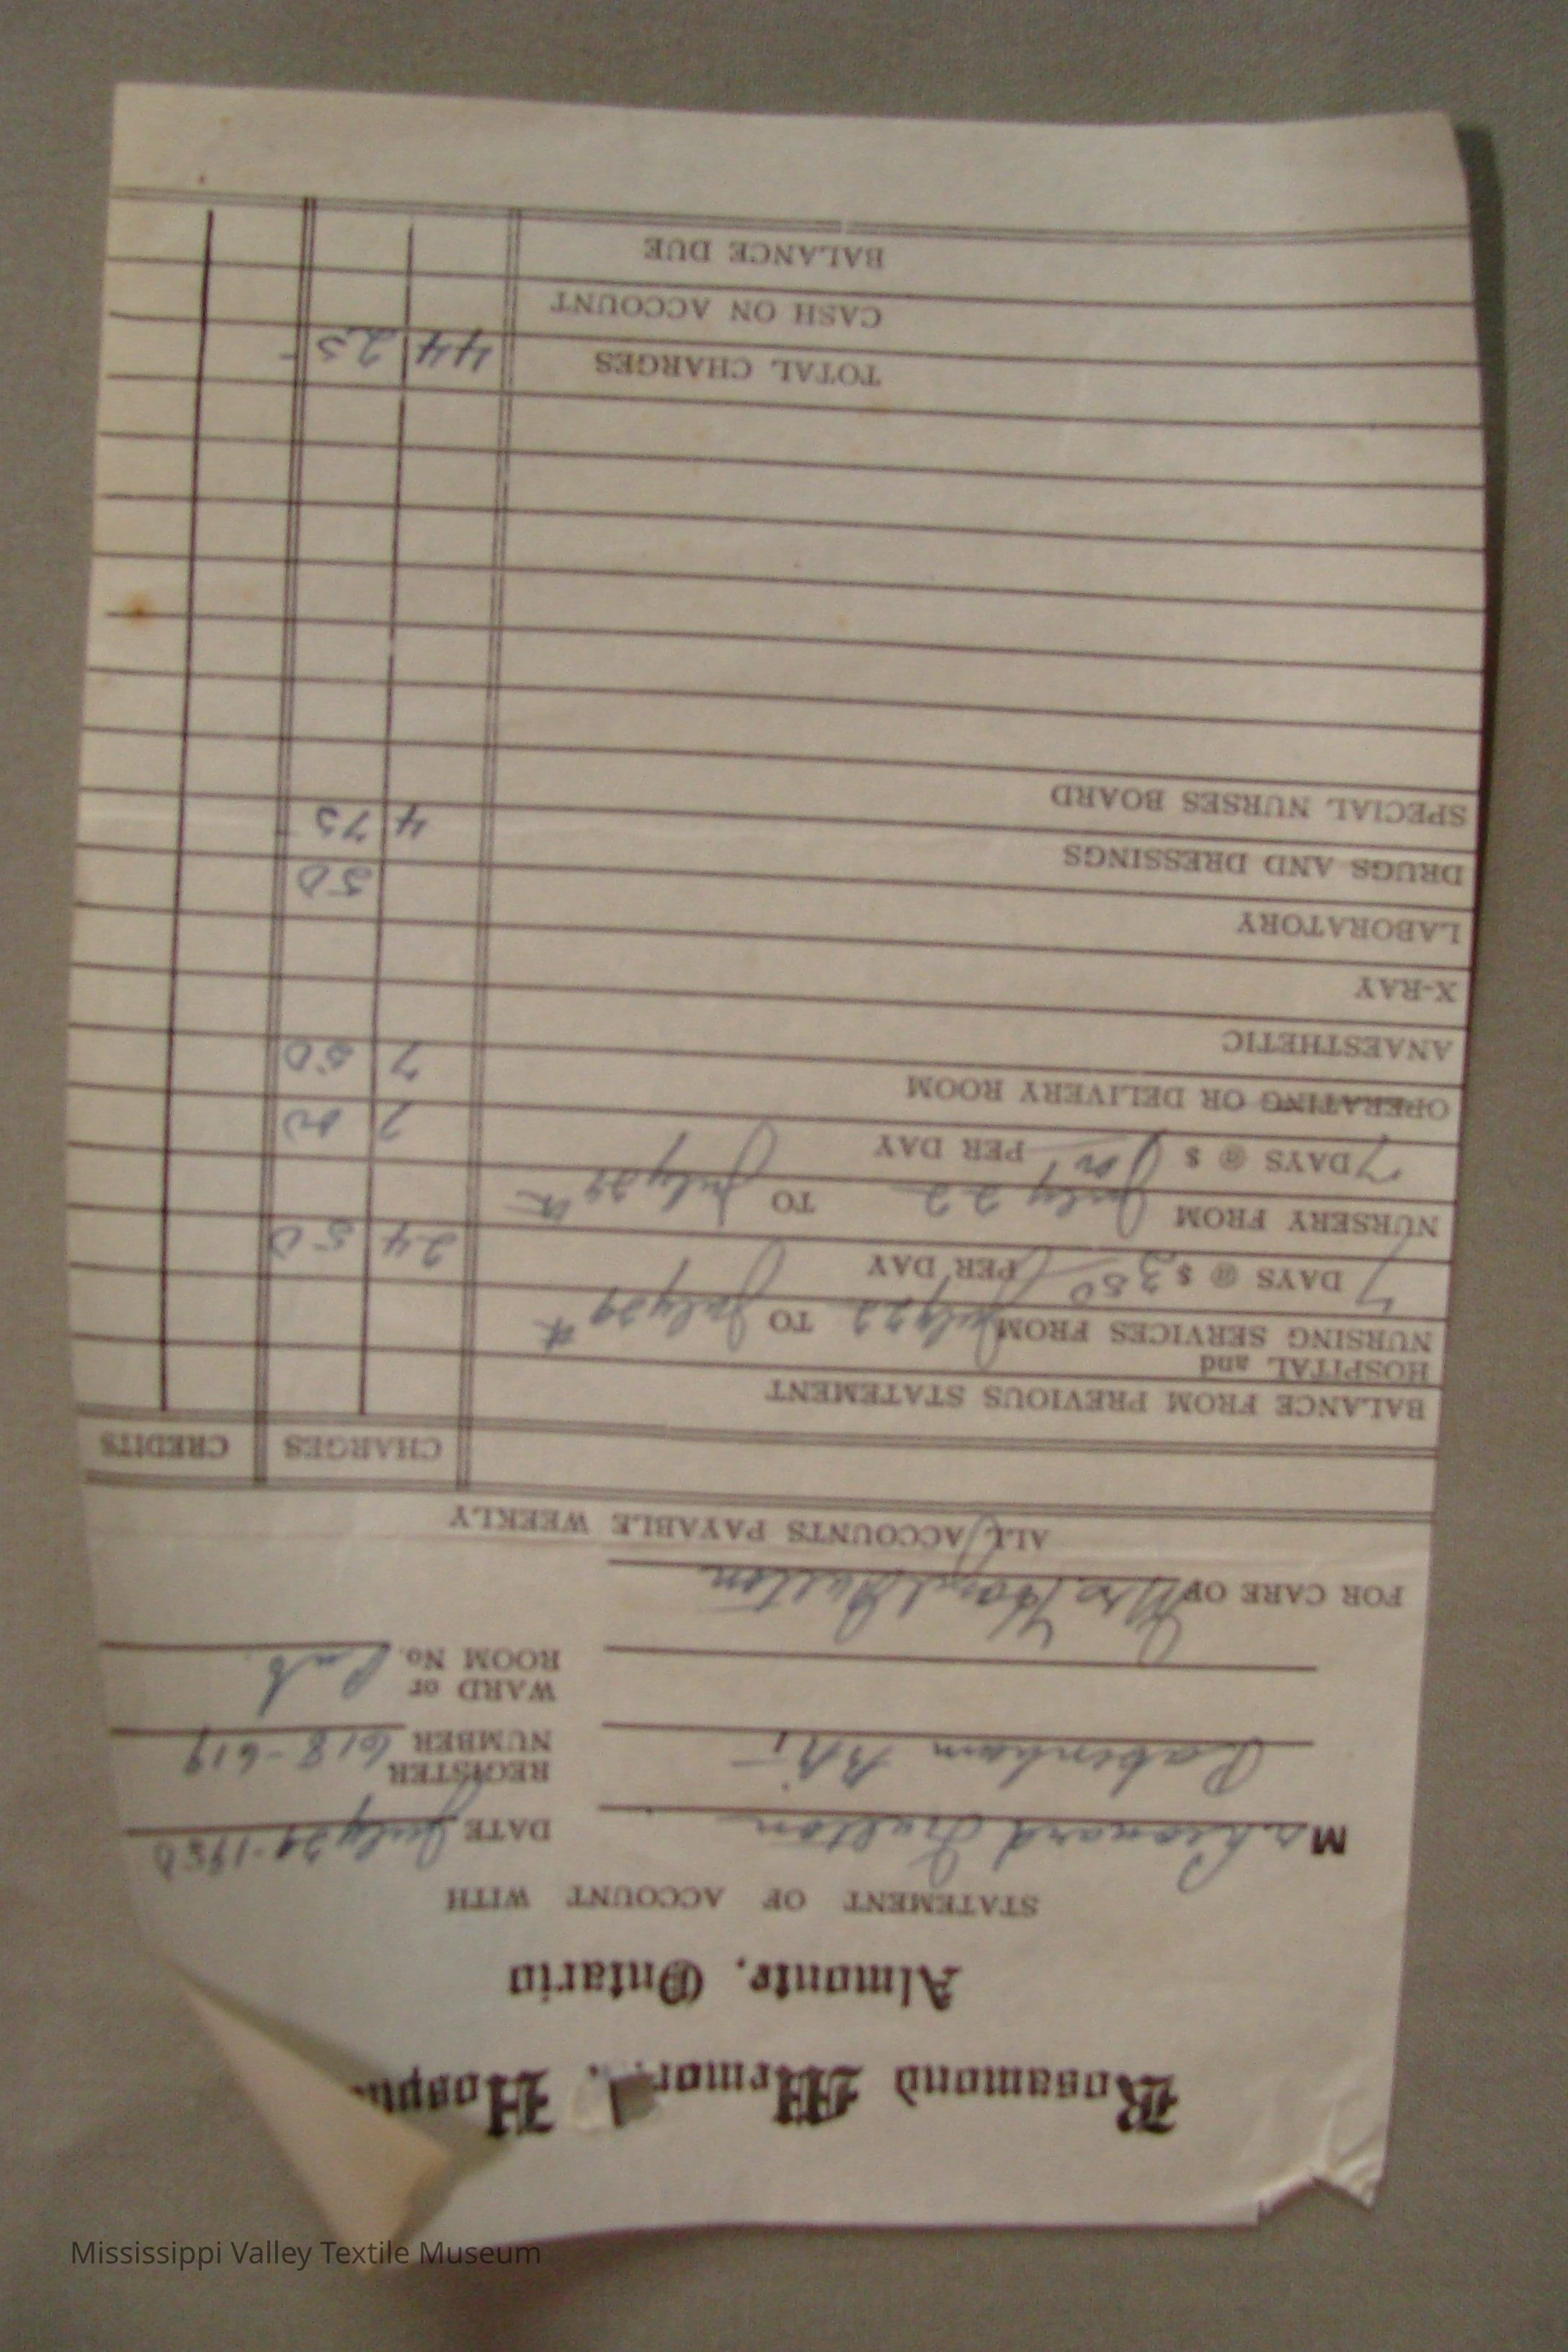 Rosamond Memor Hosp
Almonte, Ontario
STATEMENT OF ACCOUNT WITH
Mr. Leonard Fulton DATE July 29-1950
Pakenham REGISTER NUMBER 618-619
WARD or ROOM No. Pub.
FOR CARE OF Mrs. Fulton
ALL ACCOUNTS PAYABLE WEEKLY
CHARGES CREDITS
BALANCE FROM PREVIOUS STATEMENT
HOSPITAL and
NURSING SERVICES FROM July 22 TO July 29th
7 DAYS @ $ 3.50 PER DAY 24 50
NURSERY FROM July 22 TO July 29th
7 DAYS @ $ 1.00 PER DAY 7 00
OPERATING OR DELIVERY ROOM 7 50
ANAESTHETIC
X-RAY
LABORATORY 50
DRUGS AND DRESSINGS 4 75
SPECIAL NURSES BOARD
TOTAL CHARGES 44 25
CASH ON ACCOUNT
BALANCE DUE
Mississippi Valley Textile Museum